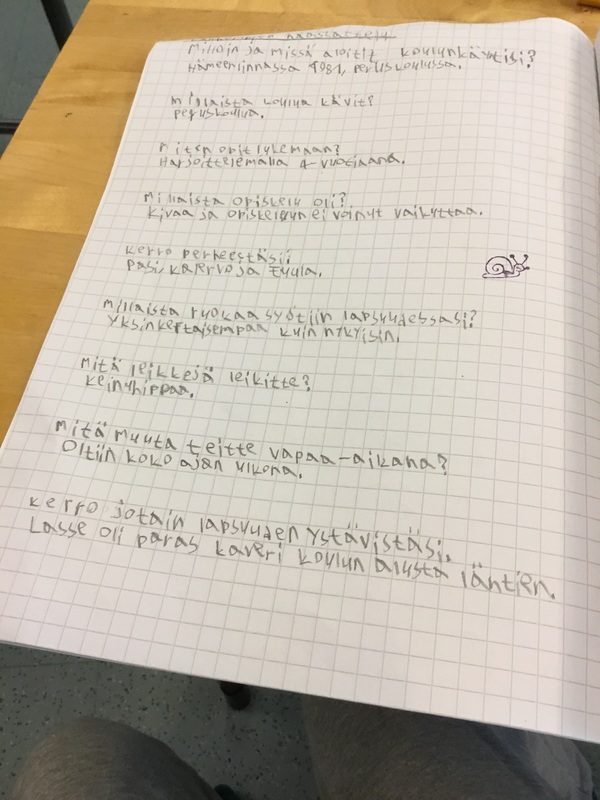 haastattelu
Milloin ja missä aloitit koulunkäytisi?
Hämeenlinnassa 1981, peruskoulussa.
Millaista koulua kävit?
peruskoulua.
Miten opit lukemaan?
Harjoittelemalla 4-vuotiaana.
Millaista opiskelu oli?
Kivaa ja opiskeluun ei voinut vaikuttaa.
Kerro perheestäsi
Pasi, Kalervo ja Eyula.
Millaista ruokaa syötiin lapsuudessasi?
Yksinkertaisempaa kuin nykyisin.
Mitä leikkejä leikitte?
Keinuhippaa.
Mitä muuta teitte vapaa-aikana?
Oltiin koko ajan ulkona.
Kerro jotain lapsuuden ystävistäsi.
Lasse oli paras kaveri koulun alusta läntien.